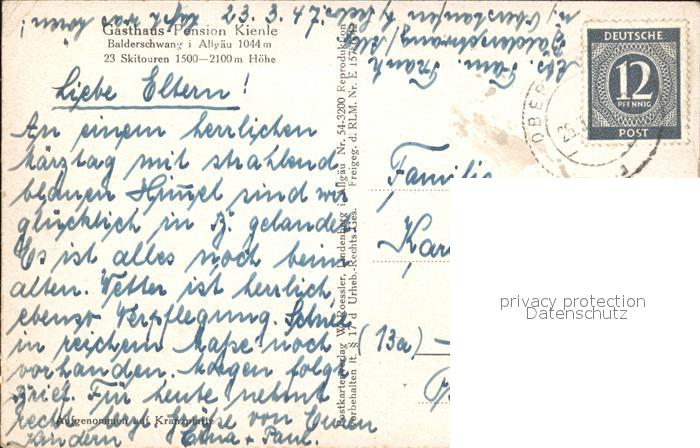 23. 3. 47.
Gasthaus-Pension Kienle
Balderschwang i Allgäu 1044 m
23 Skitouren 1500—2100 m Höhe
Liebe Eltern!
An einem herrlichen
Märztag mit strahlend
blauen Himmel sind wir
glücklich in B. gelandet.
Es ist alles noch beim
alten. Wetter ist herrlich,
ebenso Verpflegung. Schnee
in reichem Maße noch
vorhanden. Morgen folgt
Brief. Für heute nehmt
recht herzl. Grüße von Euren
Kindern
+ Paul.
Aufgenommen auf Kranzplatte
Postkartenverlag W. Roessler, Lindenberg i. Allgäu Nr. 54-3200 Reproduktion
vorbehalten lt. § 17 d Urheb.-Rechts-Ges. Freigeg. d. RLM. Nr. E
Abs. Fam. Frank
Balderschwang
DEUTSCHE
12
PFENNIG
POST
OBER
Familie
(13a)
privacy protection
Datenschutz